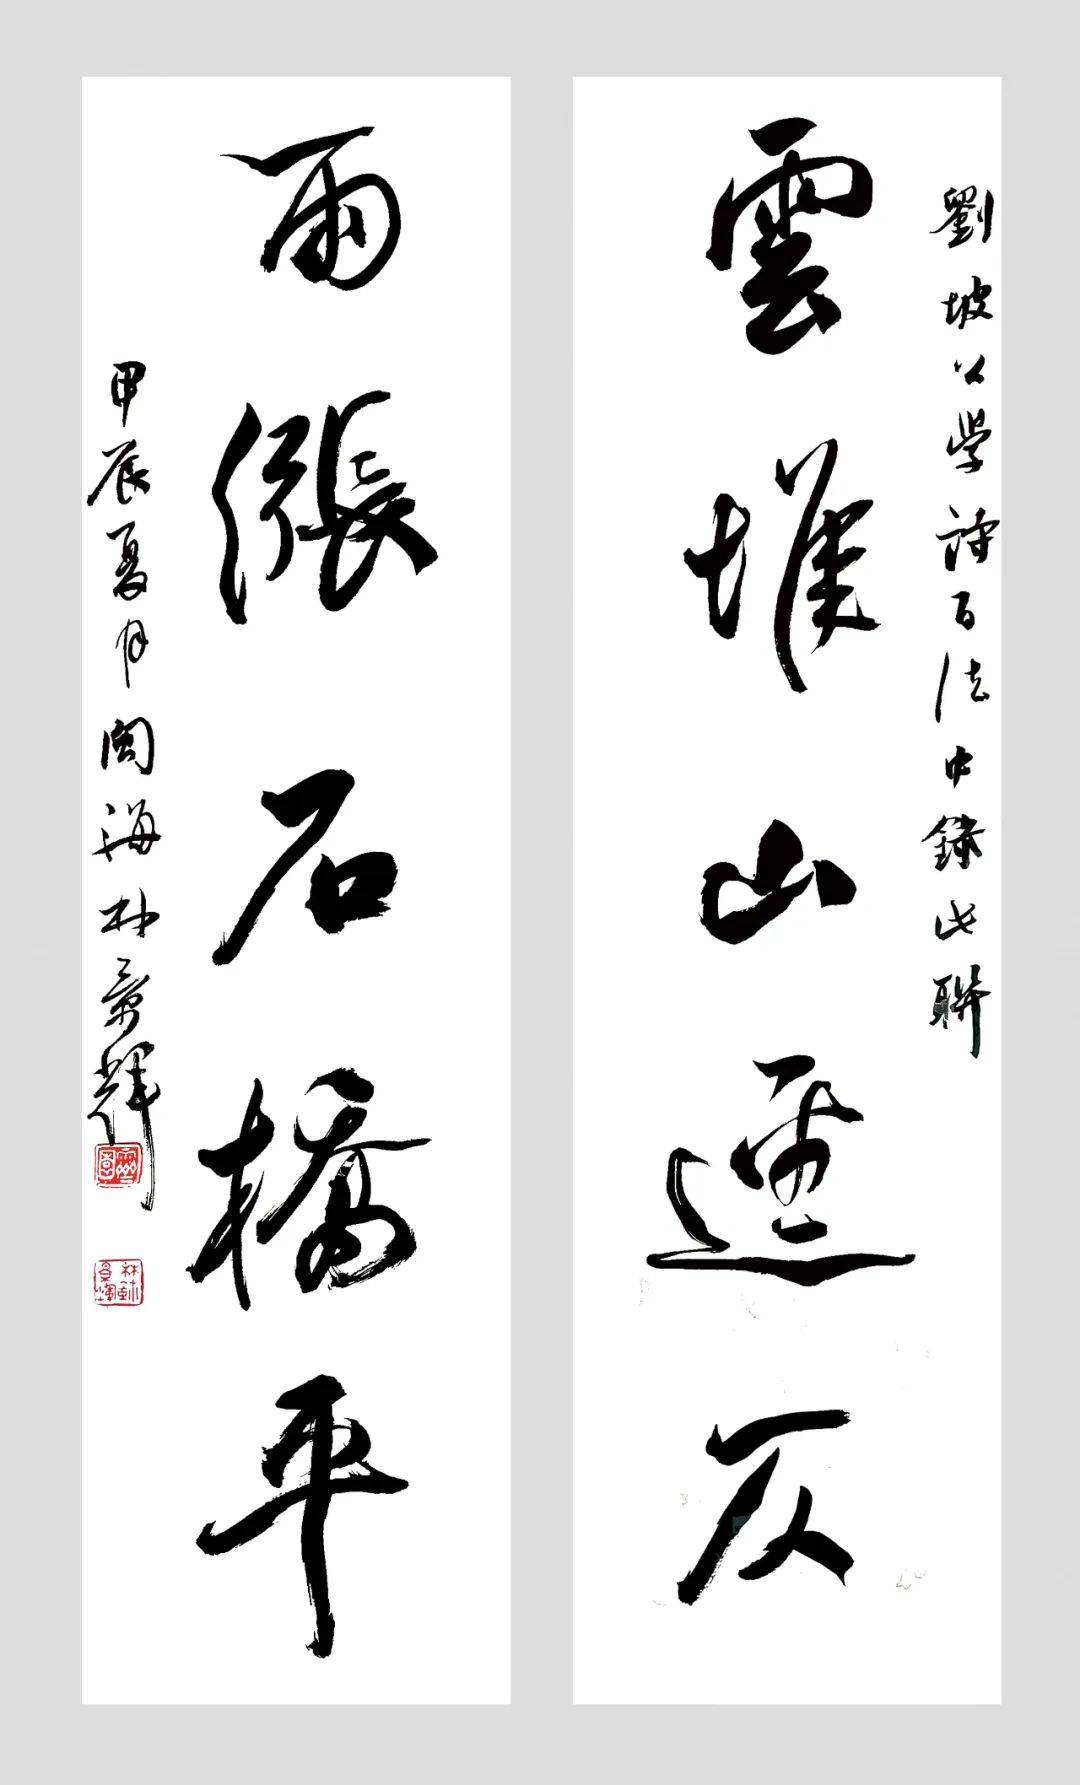 劉坡公學詩百法中錄此聯
雲堆山逕仄
雨漲石橋平
甲辰夏月閩海林景輝